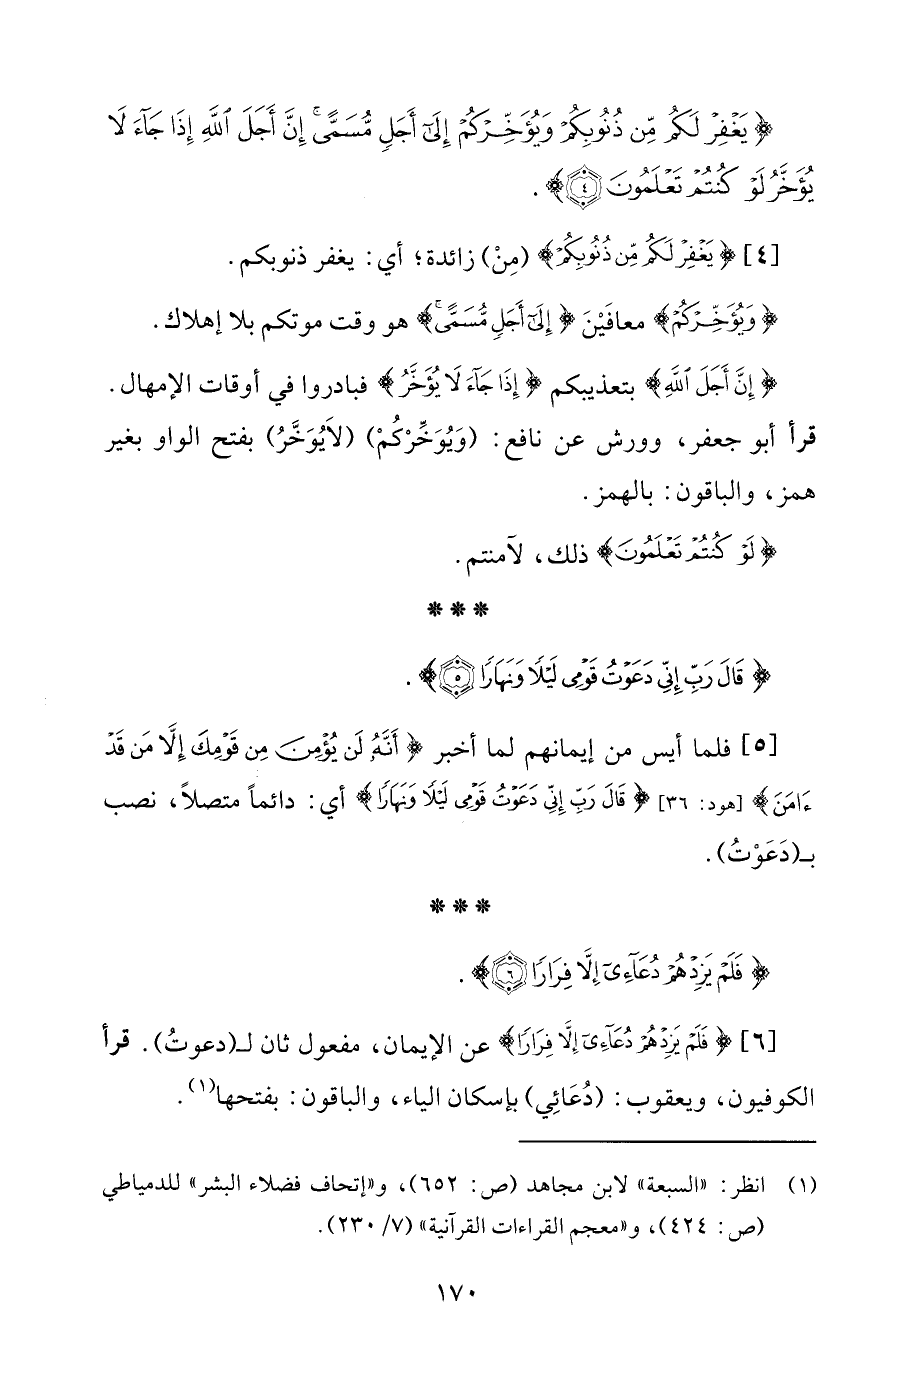 ﴿ يَغْفِرْ لَكُم مِّن ذُنُوبِكُمْ وَيُؤَخِّرْكُمْ إِلَىٰٓ أَجَلٍ مُّسَمًّى ۚ إِنَّ أَجَلَ ٱللَّهِ إِذَا جَآءَ لَا
يُؤَخَّرُ لَوْ كُنتُمْ تَعْلَمُونَ ٤ ﴾ .
[٤] ﴿ يَغْفِرْ لَكُم مِّن ذُنُوبِكُمْ ﴾ (مِنْ) زائدة؛ أي: يغفر ذنوبكم.
﴿ وَيُؤَخِّرْكُمْ ﴾ معافَيْنَ ﴿ إِلَىٰٓ أَجَلٍ مُّسَمًّى ۚ ﴾ هو وقت موتكم بلا إهلاك.
﴿ إِنَّ أَجَلَ ٱللَّهِ ﴾ بتعذيبكم ﴿ إِذَا جَآءَ لَا يُؤَخَّرُ ﴾ فبادروا في أوقات الإمهال.
قرأ أبو جعفر، وورش عن نافع: (وَيُوَخِّرْكُمْ) (لاَيُوَخَّرُ) بفتح الواو بغير
همز، والباقون: بالهمز.
﴿ لَوْ كُنتُمْ تَعْلَمُونَ ﴾ ذلك، لآمنتم.
***
﴿ قَالَ رَبِّ إِنِّي دَعَوْتُ قَوْمِى لَيْلًا وَنَهَارًا ٥ ﴾ .
[٥] فلما أيس من إيمانهم لما أخبر ﴿ أَنَّهُۥ لَن يُؤْمِنَ مِن قَوْمِكَ إِلَّا مَن قَدْ
ءَامَنَ ﴾ [هود: ٣٦] ﴿ قَالَ رَبِّ إِنِّي دَعَوْتُ قَوْمِى لَيْلًا وَنَهَارًا ﴾ أي: دائماً متصلاً، نصب
بـ(دَعَوْتُ).
***
﴿ فَلَمْ يَزِدْهُمْ دُعَآءِىٓ إِلَّا فِرَارًا ٦ ﴾ .
[٦] ﴿ فَلَمْ يَزِدْهُمْ دُعَآءِىٓ إِلَّا فِرَارًا ﴾ عن الإيمان، مفعول ثان لـ(دعوتُ). قرأ
الكوفيون، ويعقوب: (دُعَائِي) بإسكان الياء، والباقون: بفتحها(١).
(١) انظر: «السبعة» لابن مجاهد (ص: ٦٥٢)، و«إتحاف فضلاء البشر» للدمياطي
(ص: ٤٢٤)، و«معجم القراءات القرآنية» (٧/ ٢٣٠).
١٧٠